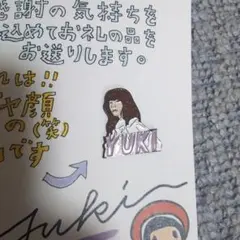 謝の気持ちを
込めておネしの品を
お送りします。
は!!
顔
の(笑)
です
YUKI
yuki